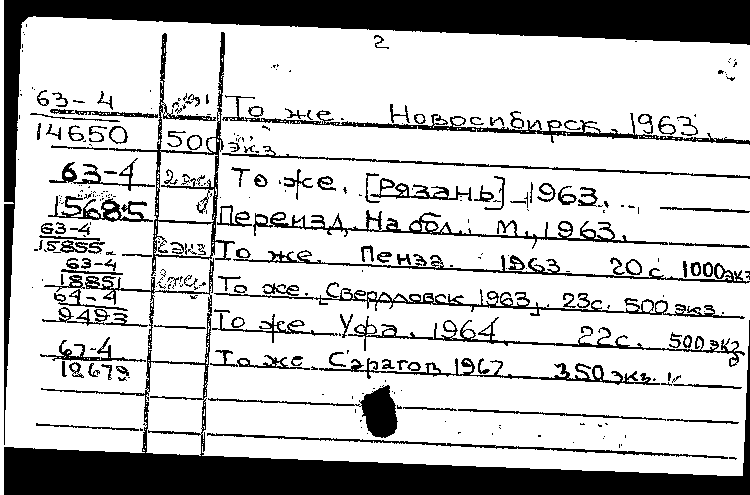 2
63-4 То же. Новосибирск, 1963.
14650 500 экз.
63-4 2 экз То же. [Рязань] 1963.
15685 Переизд. На обл.: М., 1963.
63-4
15855 2 экз То же. Пенза. 1963. 20 с. 1000 экз
63-4
18851 2 экз То же. [Свердловск, 1963]. 23 с. 500 экз.
64-4
9493 То же. Уфа. 1964. 22 с. 500 экз
67-4
18679 То же Саратов 1967. 350 экз.